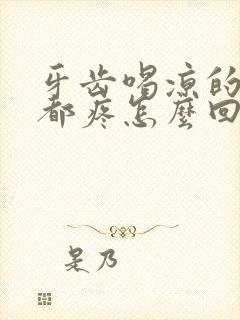 牙齿喝凉的
都疼怎麼回
是乃